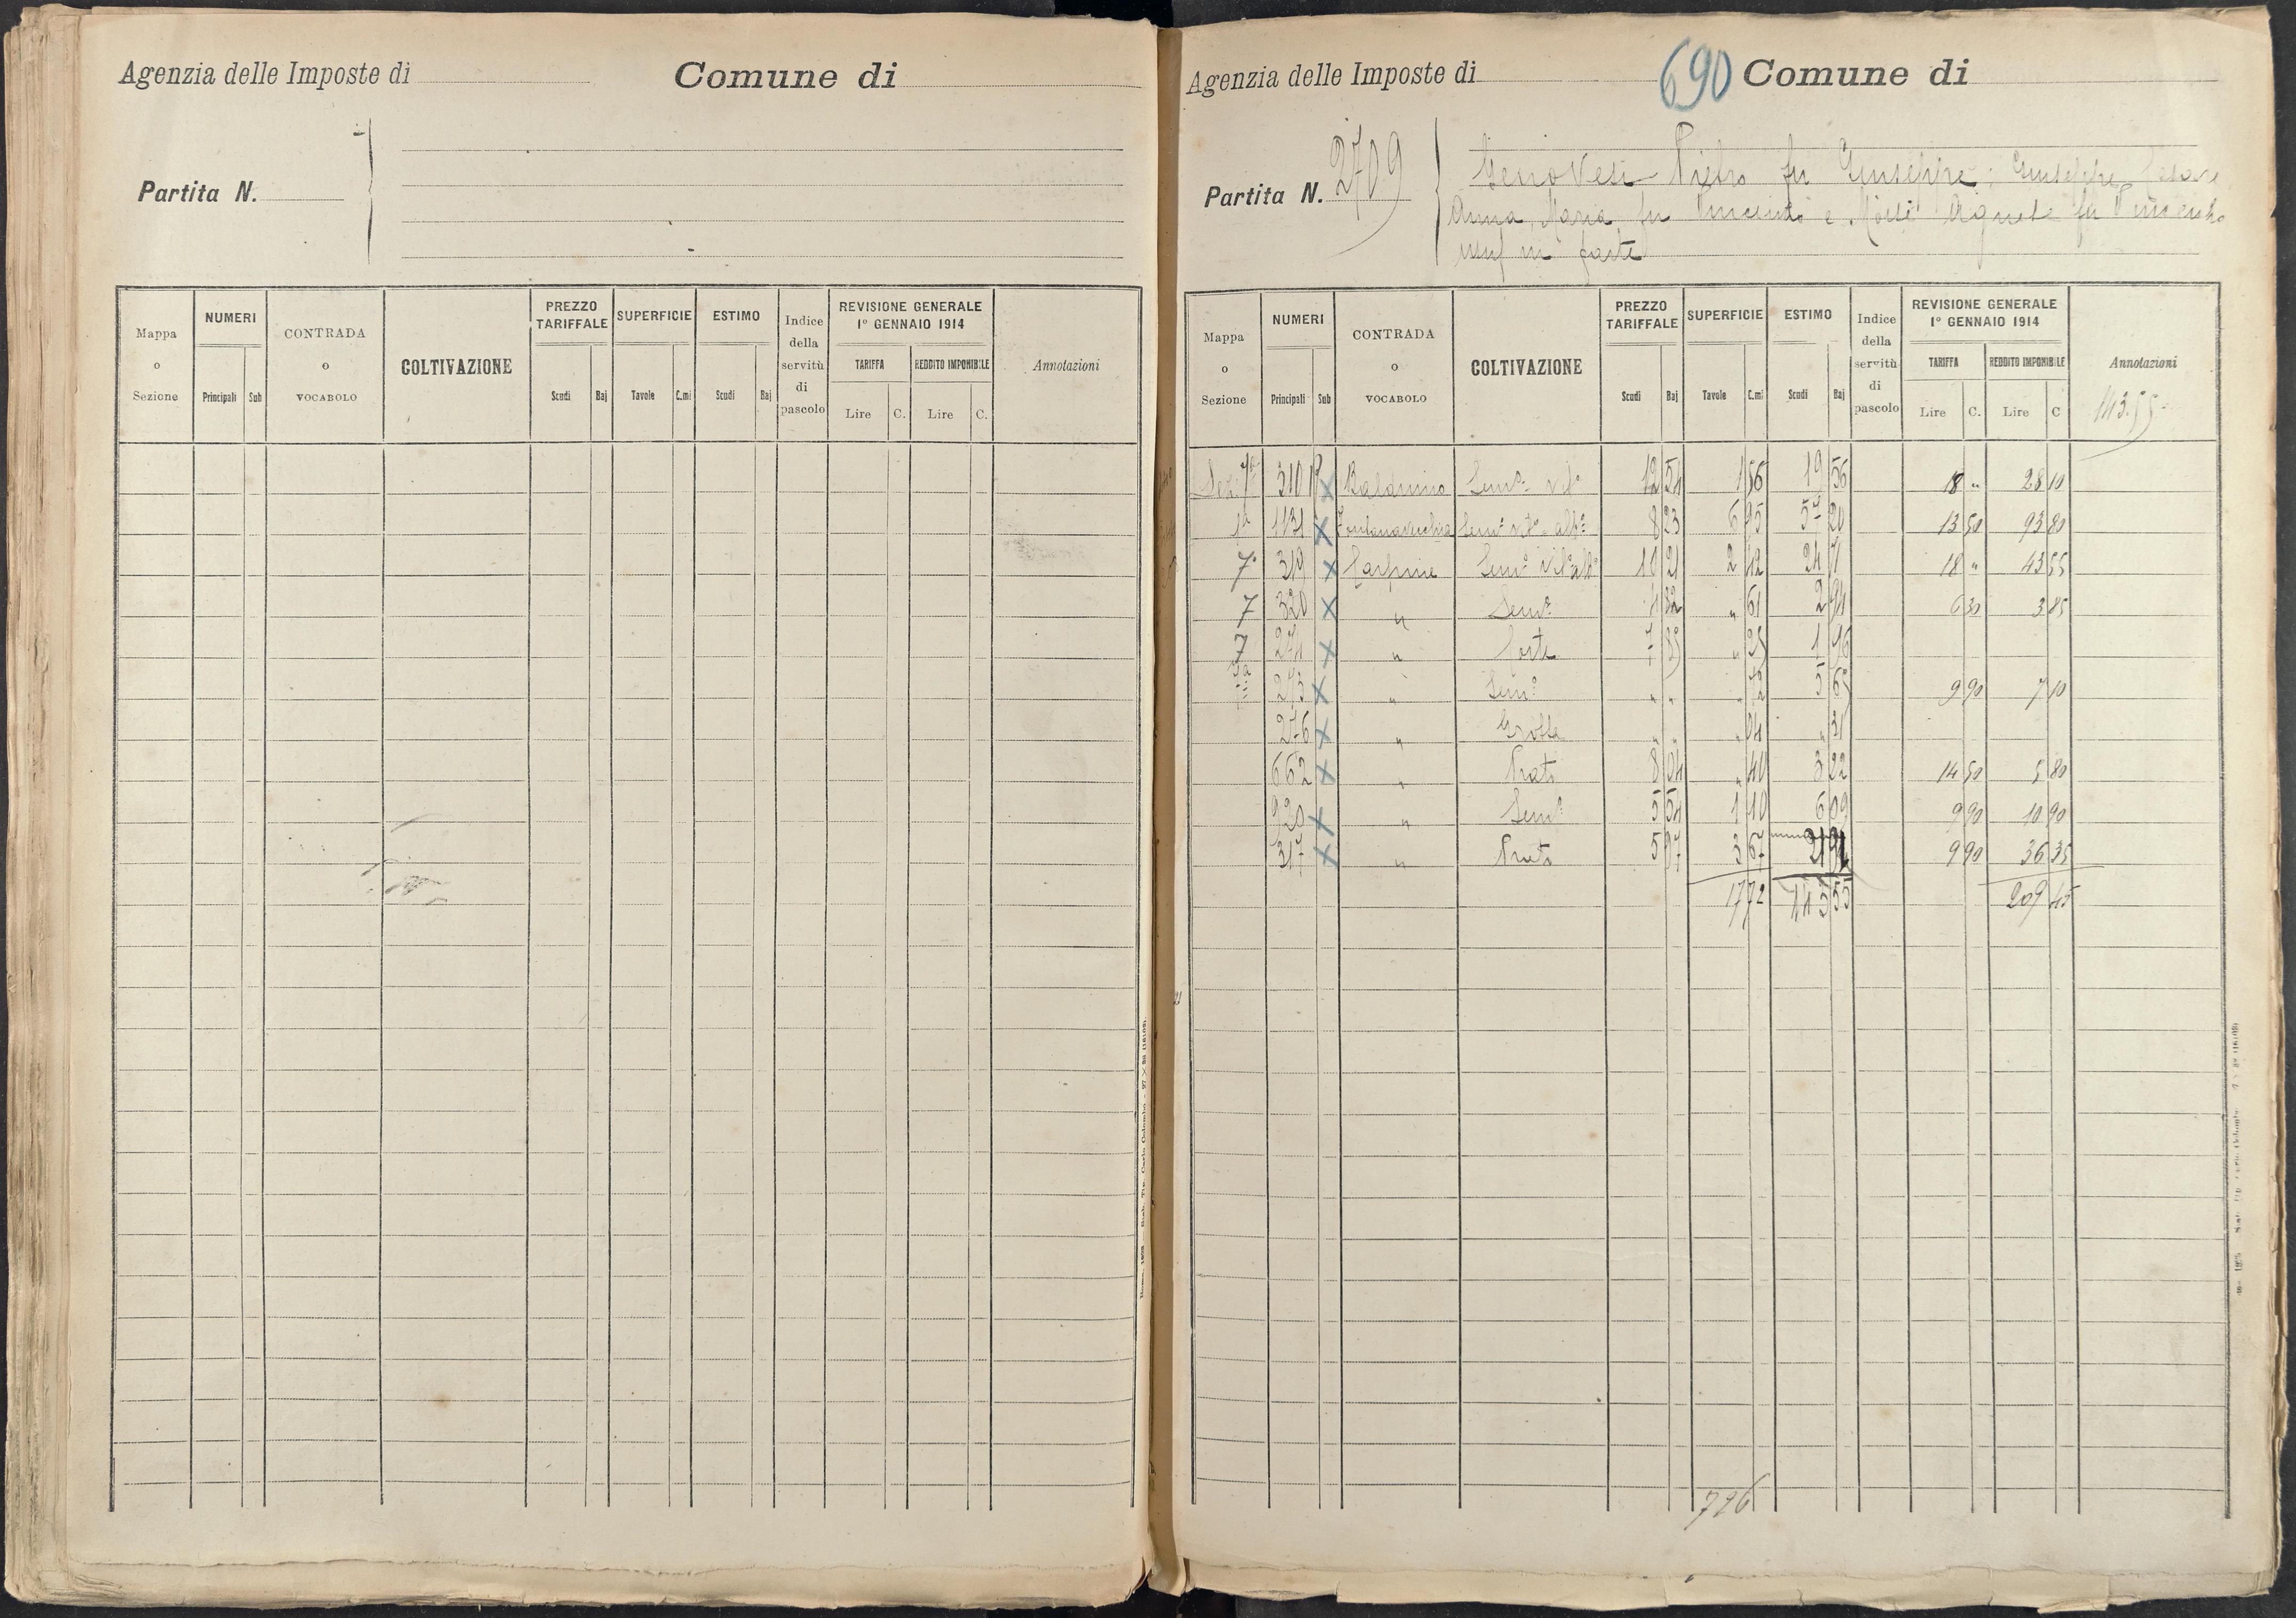 Agenzia delle Imposte di Comune di
Partita N.
Mappa o Sezione NUMERI Principali Sub CONTRADA o VOCABOLO COLTIVAZIONE PREZZO TARIFFALE Scudi Baj SUPERFICIE Tavole C.mi ESTIMO Scudi Baj Indice della servitù di pascolo REVISIONE GENERALE 1º GENNAIO 1914 TARIFFA Lire C. REDDITO IMPONIBILE Lire C. Annotazioni
Agenzia delle Imposte di 690 Comune di
Partita N. 2709
Genovesi Pietro fu Giuseppe; Giuseppe, Cesare
Anna, Maria fu Vincenzo e Agnese fu Vincenzo
usuf in parte
Mappa o Sezione NUMERI Principali Sub CONTRADA o VOCABOLO COLTIVAZIONE PREZZO TARIFFALE Scudi Baj SUPERFICIE Tavole C.mi ESTIMO Scudi Baj Indice della servitù di pascolo REVISIONE GENERALE 1º GENNAIO 1914 TARIFFA Lire C. REDDITO IMPONIBILE Lire C Annotazioni
143.55
Sez. 7ª 310 X Balduino Semº vitº 12 54 1 56 19 56 18 " 28 10
1ª X Fontanavecchia Semº vitº albº 8 23 6 95 57 20 13 50 93 80
7ª 319 X Carpine Semº vitº albº 10 21 2 42 24 71 18 " 43 55
7 320 X " Semº 4 82 " 61 2 94 6 30 3 85
7 274 X " Corte " 25 1 96
275 X " Semº " " " 72 5 65 9 90 7 10
276 X " Grotta " " " 04 " 31
662 X " Prato 8 04 " 40 3 22 14 50 5 80
920 X " Semº 5 54 1 10 6 09 9 90 10 90
317 X " Prato 5 97 3 67 21 91 9 90 36 35
17 72 143 55 209 45
726